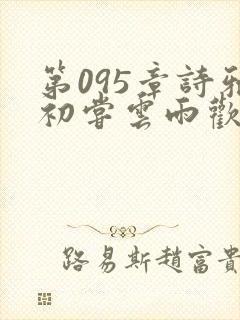 第095章詩雅
初嘗雲雨歡
路易斯趙富貴